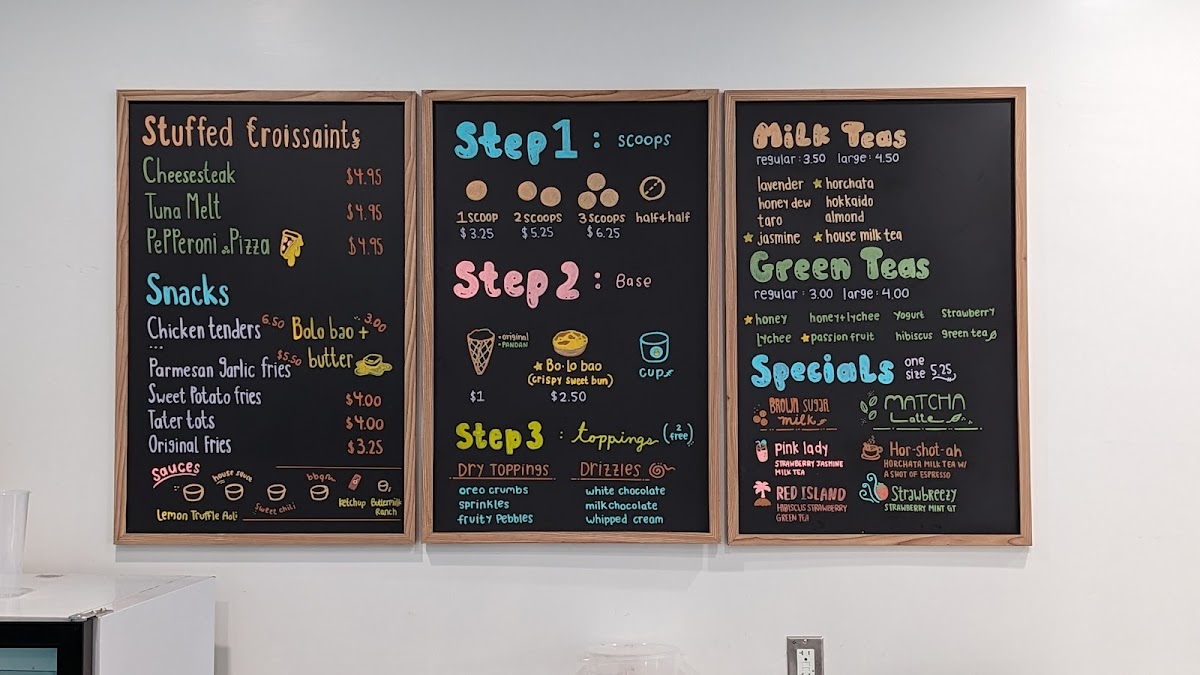 Stuffed Croissaints
Cheesesteak $4.95
Tuna Melt $4.95
Pepperoni & Pizza $4.95
Snacks
Chicken tenders 6.50
Bolo bao + butter 3.00
Parmesan garlic fries $5.50
Sweet Potato fries $4.00
Tater tots $4.00
Original Fries $3.25
Sauces
house sauce
sweet chili
bbq
ketchup
Buttermilk Ranch
Lemon Truffle Aoli
Step 1: scoops
1 scoop 2 scoops 3 scoops half+half
$3.25 $5.25 $6.25
Step 2: Base
• original
• PANDAN
Bo·lo bao
(crispy sweet bun)
cup
$1 $2.50
Step 3: toppings (2 free)
Dry Toppings
oreo crumbs
sprinkles
fruity Pebbles
Drizzles
white chocolate
milk chocolate
whipped cream
Milk Teas
regular: 3.50 large: 4.50
lavender horchata
honey dew hokkaido
taro almond
jasmine house milk tea
Green Teas
regular: 3.00 large: 4.00
honey honey+lychee Yogurt Strawberry
Lychee passion fruit hibiscus green tea
Specials one size 5.25
BROWN SUGAR
milk
MATCHA
Latte
pink lady
STRAWBERRY JASMINE
MILK TEA
Hor-shot-ah
HORCHATA MILK TEA W/
A SHOT OF ESPRESSO
RED ISLAND
HIBISCUS STRAWBERRY
GREEN TEA
Strawbreezy
STRAWBERRY MINT GT